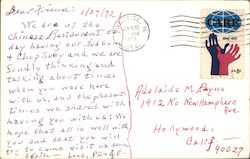 Dear Friend: 1/29/72
We are at the
Chinese Restaurant to-
day having our Sub Gum
& Chop Suey and we are
fondly thinking and
talking about times
when you were here
with us, and the pleasant
times we shared with
having you with us! We
hope that all is well with
you and that you will
try to come visit us soon
again - Love,
CARE
Adelaide M. Payne
1912 No New Hampshire
Ave.
Hollywood,
Calif.
90027